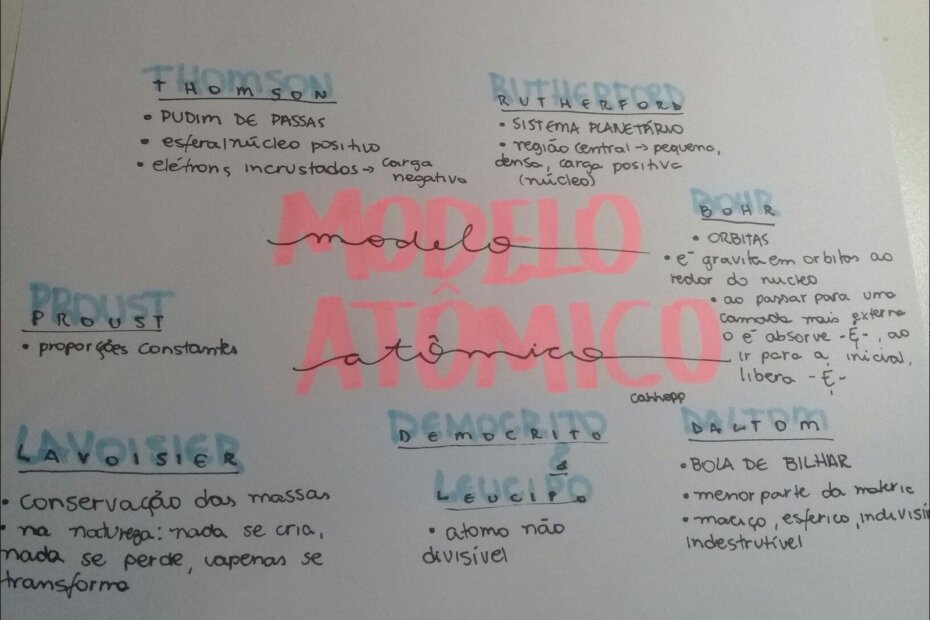 THOMSON
• PUDIM DE PASSAS
• esfera/núcleo positivo
• elétrons incrustados → carga
negativa
RUTHERFORD
• SISTEMA PLANETÁRIO
• região central → pequena,
densa, carga positiva
(núcleo)
MODELO
modelo
BOHR
• ORBITAS
• e⁻ gravita em orbitas ao
redor do nucleo
• ao passar para uma
camada mais externa
o e⁻ absorve -E-, ao
ir para a inicial,
libera -E-
PROUST
• proporções constantes
ATÔMICO
atômico
LAVOISIER
• conservação das massas
• na natureza: nada se cria,
nada se perde, apenas se
transforma
DEMOCRITO
&
LEUCIPO
• atomo não
divisível
DALTOM
• BOLA DE BILHAR
• menor parte da matéria
• maciço, esferico,
indestrutível